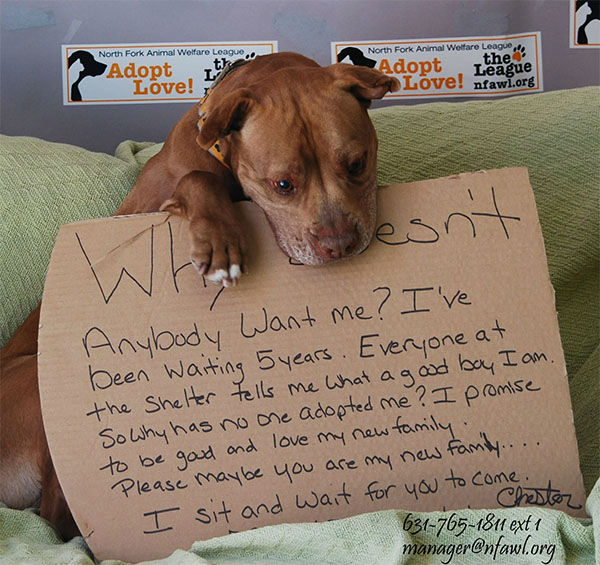 North Fork Animal Welfare League
Adopt
Love!
North Fork Animal Welfare League
Adopt the
Love! League
nfawl.org
Anybody Want me? I've
been waiting 5 years. Everyone at
the Shelter tells me what a good boy I am.
So why has no one adopted me? I promise
to be good and love my new family.
Please maybe you are my new family....
I sit and wait for you to come.
Chester
631-765-1811 ext 1
manager@nfawl.org